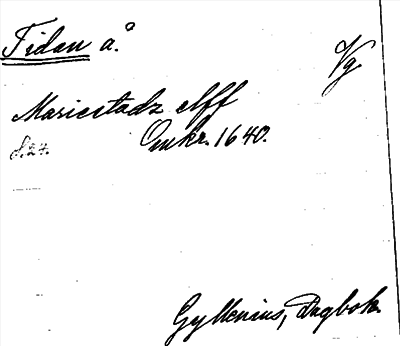 Tidan å.
Vg
Mariestadz elff
Omkr. 1640.
s. 24.
Gyllenius, Dagbok.